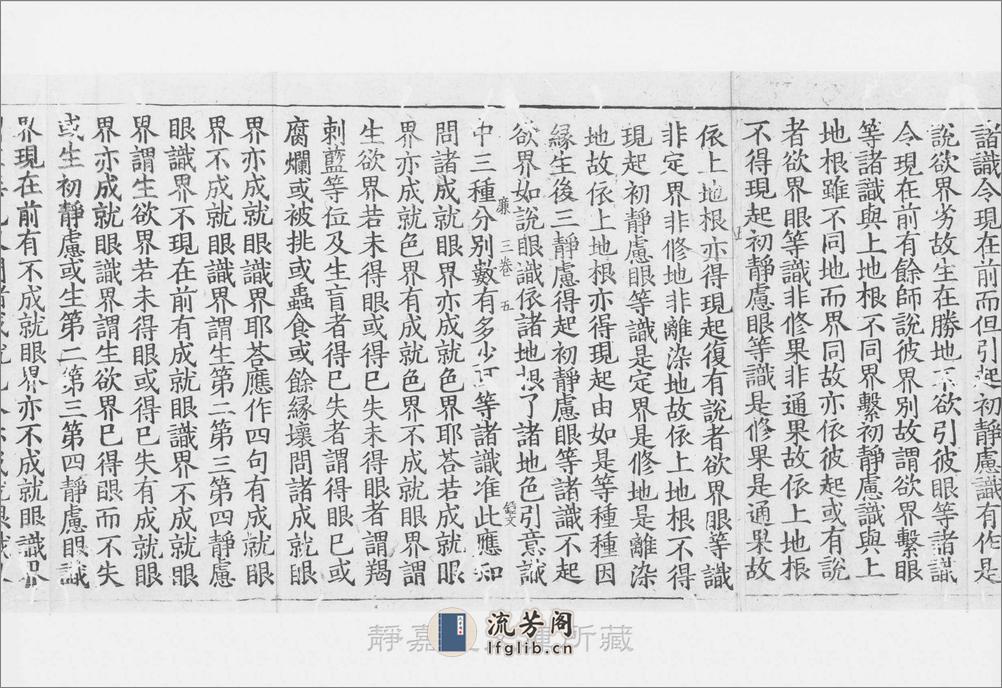 諸識令現在前而但引起初靜慮識有作是
說欲界劣故生在勝地不欲引彼眼等諸識
令現在前有餘師說彼界別故謂欲界繫眼
等諸識與上地根不同界繫初靜慮識與上
地根雖不同地而界同故亦依彼起或有說
者欲界眼等識非修果非通果故依上地根
不得現起初靜慮眼等識是修果是通果故
依上地根亦得現起復有說者欲界眼等識
非定界非修地非離染地故依上地根不得
現起初靜慮眼等識是定界是修地是離染
地故依上地根亦得現起由如是等種種因
緣生後三靜慮得起初靜慮眼等諸識不起
欲界如說眼識依諸地根了諸地色引意識
中三種分別數有多少耳等諸識准此應知
廉 三卷 五
問諸成就眼界亦成就色界耶荅若成就眼
界亦成就色界有成就色界不成就眼界謂
生欲界若未得眼或得已失未得眼者謂羯
刺藍等位及生盲者得已失者謂得眼已或
腐爛或被挑或蟲食或餘緣壞問諸成就眼
界亦成就眼識界耶荅應作四句有成就眼
界不成就眼識界謂生第二第三第四靜慮
眼識界不現在前有成就眼識界不成就眼
界謂生欲界若未得眼或得已失有成就眼
界亦成就眼識界謂生欲界已得眼而不失
或生初靜慮或生第二第三第四靜慮眼識
界現在前有不成就眼界亦不成就眼識界
靜嘉
所藏
流芳阁
lfglib.cn